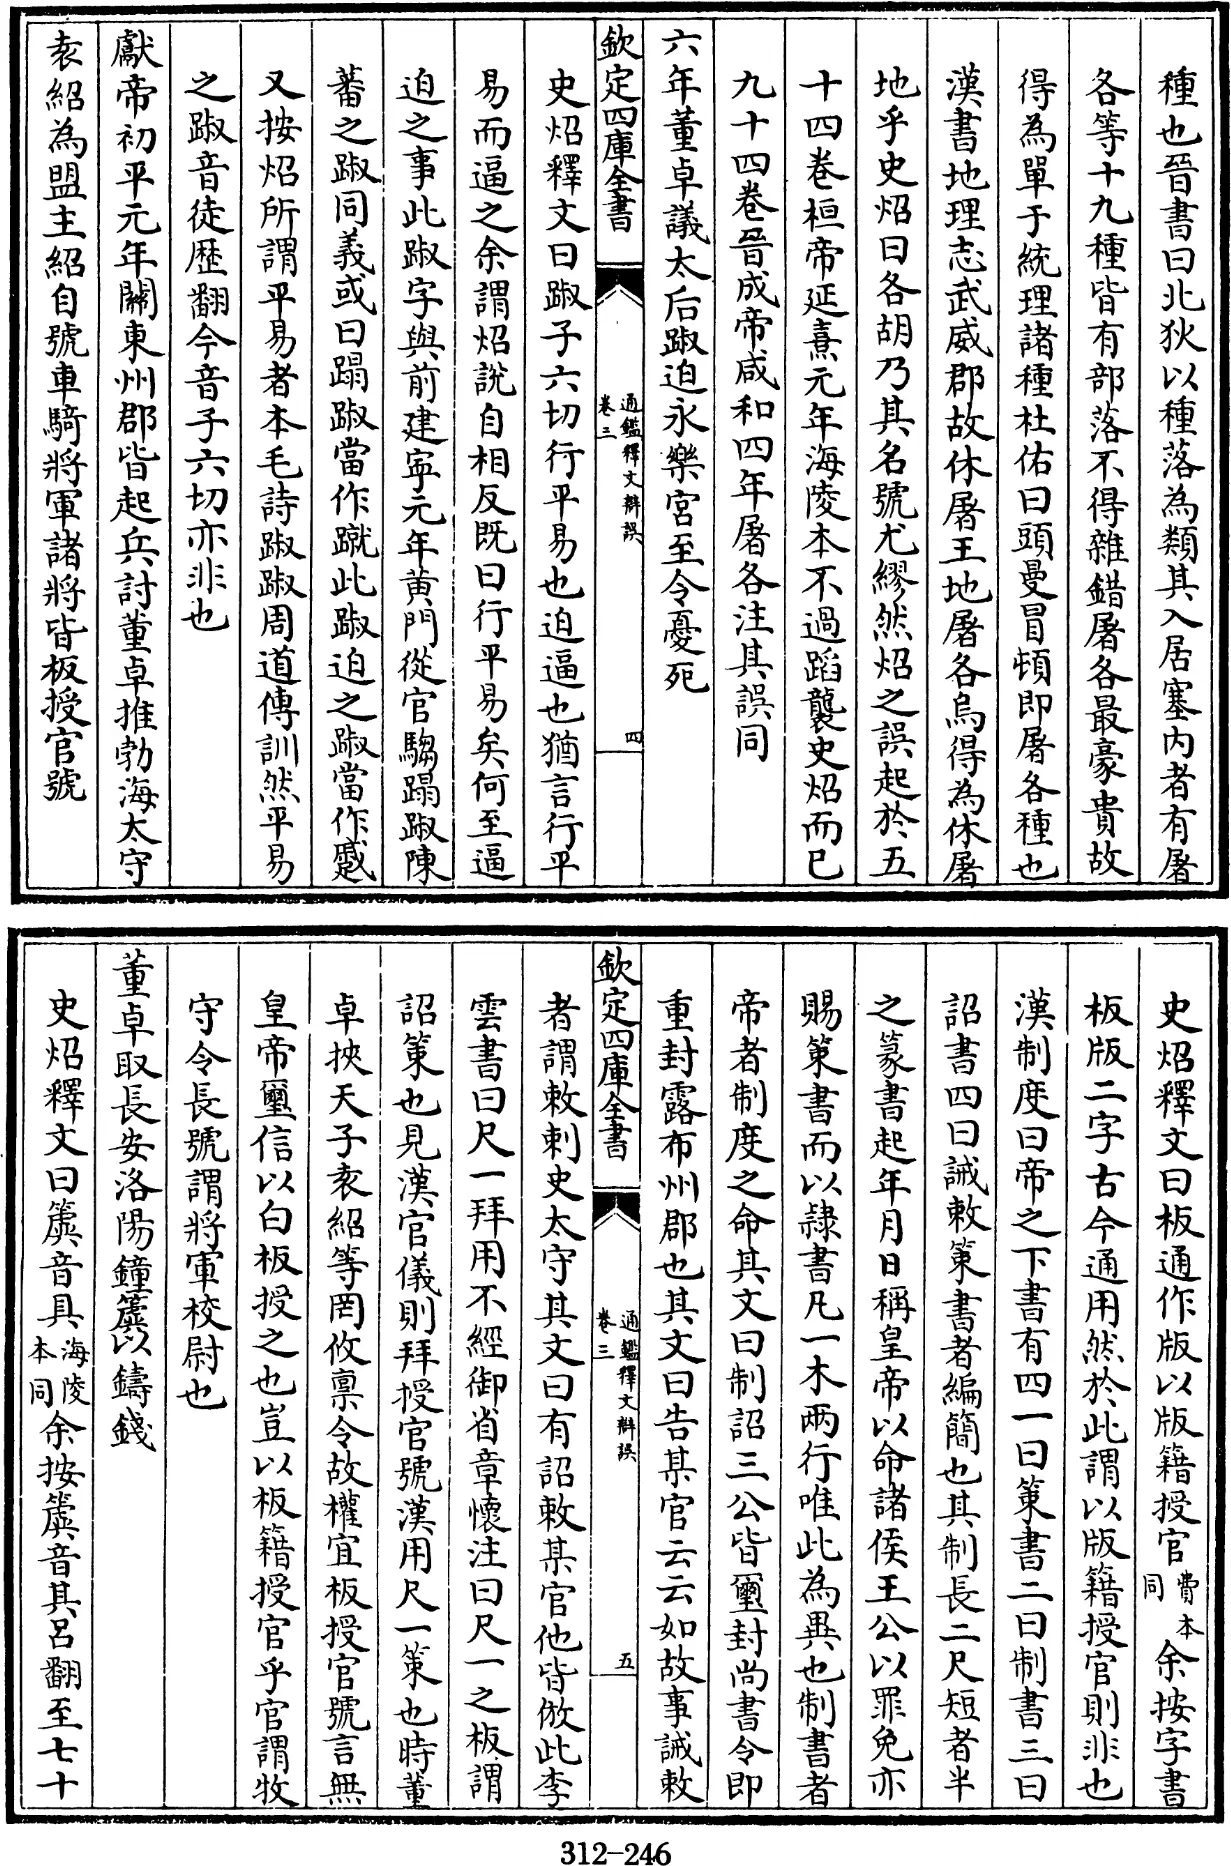 種也晉書曰北狄以種落為類其入居塞内者有屠
各等十九種皆有部落不得雜錯屠各最豪貴故
得為單于統理諸種杜佑曰頭曼冒頓即屠各種也
漢書地理志武威郡故休屠王地屠各烏得為休屠
地乎史炤曰各胡乃其名號尤繆然炤之誤起於五
十四卷桓帝延熹元年海陵本不過蹈襲史炤而已
九十四卷晉成帝咸和四年屠各注其誤同
六年董卓議太后踧迫永樂宮至令憂死
欽定四庫全書
通鑑釋文辯誤
卷三
四
史炤釋文曰踧子六切行平易也迫逼也猶言行平
易而逼之余謂炤説自相反既曰行平易矣何至逼
迫之事此踧字與前建寧元年黄門從官騶蹋踧陳
蕃之踧同義或曰蹋踧當作蹴此踧迫之踧當作蹙
又按炤所謂平易者本毛詩踧踧周道傳訓然平易
之踧音徒歴翻今音子六切亦非也
獻帝初平元年關東州郡皆起兵討董卓推勃海太守
袁紹為盟主紹自號車騎將軍諸將皆板授官號
史炤釋文曰板通作版以版籍授官費本同余按字書
板版二字古今通用然於此謂以版籍授官則非也
漢制度曰帝之下書有四一曰策書二曰制書三曰
詔書四曰誡敕策書者編簡也其制長二尺短者半
之篆書起年月日稱皇帝以命諸侯王公以罪免亦
賜策書而以隷書凡一木兩行唯此為異也制書者
帝者制度之命其文曰制詔三公皆璽封尚書令即
重封露布州郡也其文曰告某官云云如故事誡敕
欽定四庫全書
通鑑釋文辯誤
卷三
五
者謂敕刺史太守其文曰有詔敕某官他皆倣此李
雲書曰尺一拜用不經御省章懷注曰尺一之板謂
詔策也見漢官儀則拜授官號漢用尺一策也時董
卓挾天子袁紹等罔攸禀令故權宜板授官號言無
皇帝璽信以白板授之也豈以板籍授官乎官謂牧
守令長號謂將軍校尉也
董卓取長安洛陽鐘簴以鑄錢
史炤釋文曰簴音具海陵本同余按簴音其呂翻至七十
312-246